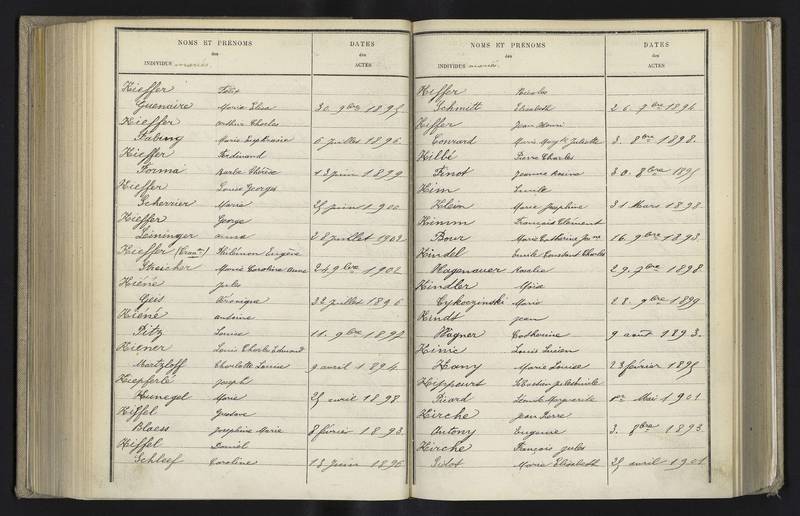 NOMS ET PRÉNOMS
des
INDIVIDUS mariés.
DATES
des
ACTES
Kieffer Félix
Guenaire Marie Elise 30. 9bre 1895
Kieffer Arthur Charles
Fabing Marie Euphrasie 6 juillet 1896.
Kieffer Ferdinand
Forma Barbe Thérèse 13 juin 1899
Kieffer Louis Georges
Scherrier Marie 25 juin 1900
Kieffer George
Leininger Anna 28 juillet 1902
Kieffer Philémon Eugène
Streicher Marie Caroline Anne 24 9bre 1902
Kiéné Jules
Geis Véronique 22 juillet 1896
Kiéné Antoine
Pitz Louise 11. 9bre 1892
Kiener Louis Charles Edouard
Martzloff Charlotte Louise 9 avril 1894.
Kiepferlé Joseph
Hunegel Marie 25 avril 1898.
Kiffel Gustave
Blaess Joséphine Marie 8 février 1893.
Kiffel Daniel
Schleef Caroline 13 juin 1896
NOMS ET PRÉNOMS
des
INDIVIDUS mariés.
DATES
des
ACTES
Kiffer Nicolas
Schmitt Elisabeth 26. 9bre 1894
Kiffer Jean Henri
Conrard Marie Juliette 3. 8bre 1898.
Kilbé Pierre Charles
Finot Jeanne Rosine 30. 8bre 1895
Kim
Klein Marie Joséphine 31 Mars 1898.
Kimm François Clément
Bour Marie Catherine 16. 9bre 1893.
Kindel Emile Constant Charles
Wagenauer Rosalie 29. 7bre 1898.
Kindler
Cykoczinski Marie 28. 9bre 1899
Kindt Jean
Wagner Catherine 9 août 1893.
Kinic Louis Lucien
Hany Marie Louise 23 février 1895
Kippeurt Sébastien
Picard Marguerite 1er Mai 1901
Kirche Jean Pierre
Antony Eugénie 3. 8bre 1893.
Kirche François Jules
Gidot Marie Elisabeth 25 avril 1901